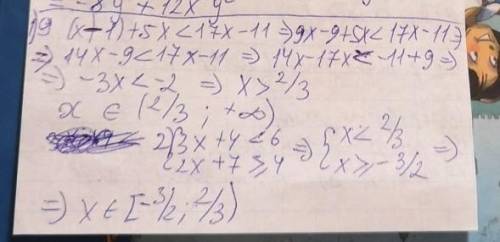 = -8y + 12x y
1) 9 (x-1)+5x<17x-11 => 9x-9+5x<17x-11 =>
=> 14x-9<17x-11 => 14x-17x<-11+9 =>
=> -3x<-2 => x>2/3
x ∈ (2/3; +∞)
2) {3x+4<6 => {x<2/3 =>
{2x+7≥4 {x≥-3/2
=> x∈[-3/2; 2/3)